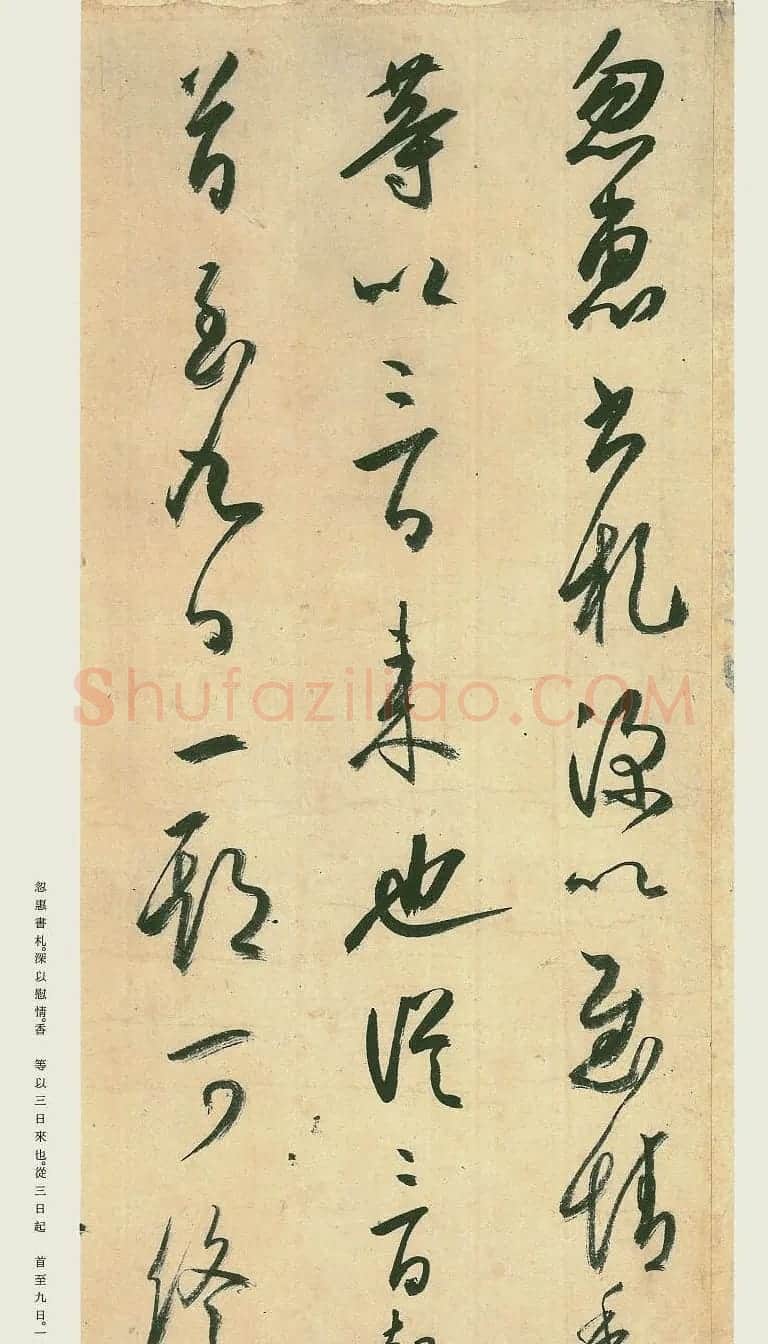 忽惠書札深以慰情香
等以三日來也從三日起
首至九日一郡可終
Shufaziliao.COM
忽惠書札。深以慰情。香　等以三日來也。從三日起　首至九日。一